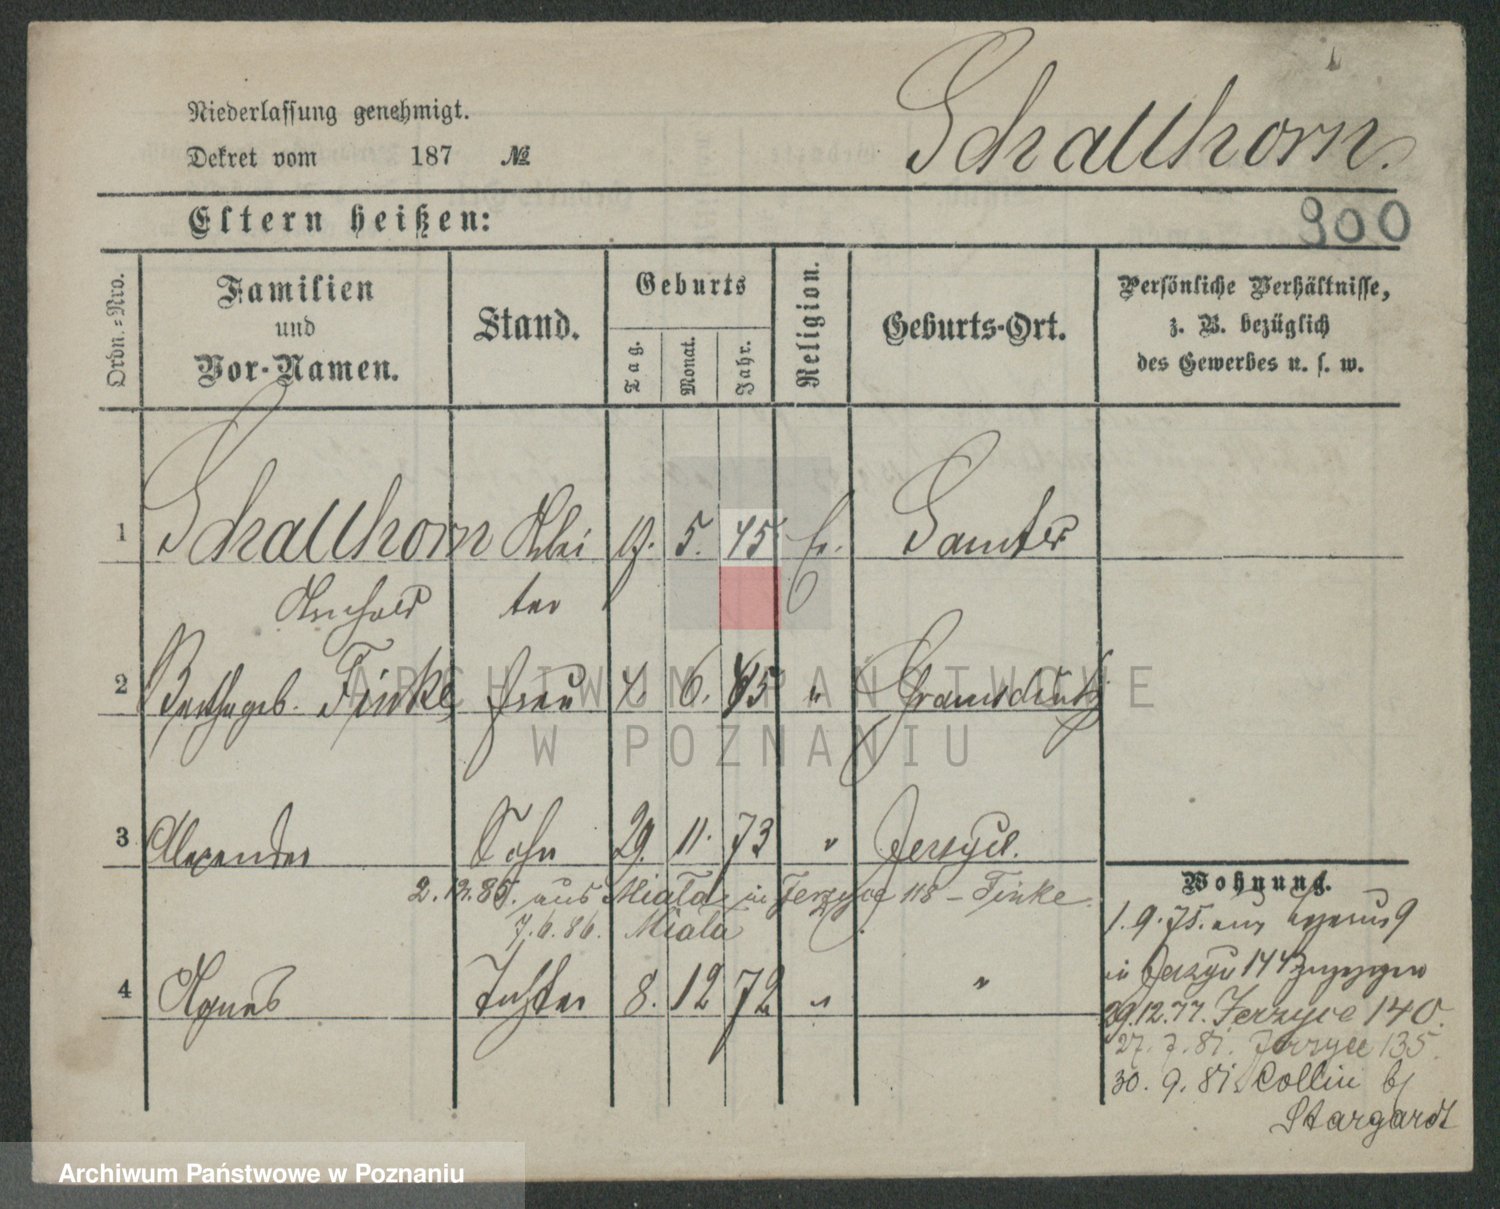 Niederlassung genehmigt.
Dekret vom 187 №
Schallhorn.
Eltern heißen:
900
Ordn.=Nro.
Familien und Vor-Namen.
Stand.
Geburts
Tag.
Monat.
Jahr.
Religion.
Geburts-Ort.
Persönliche Verhältnisse,
z. B. bezüglich
des Gewerbes u. s. w.
1 Schallhorn 5. 45. Samter
2 geb. Finke Frau 6. 45 "
3 Alexander Sohn 29. 11. 73 " Jerzyce.
2. 12. 85. aus Miala in Jerzyce 118 - Finke.
7. 6. 86. Miala
4 Agnes Tochter 8. 12 72 " "
Wohnung.
1. 9. 75. aus
in Jerzyce 144
29.12.77. Jerzyce 140.
27. 7. 81. Jerzyce 135.
30. 9. 81. Collin b/
Stargardt
ARCHIWUM PAŃSTWOWE
W POZNANIU
Archiwum Państwowe w Poznaniu